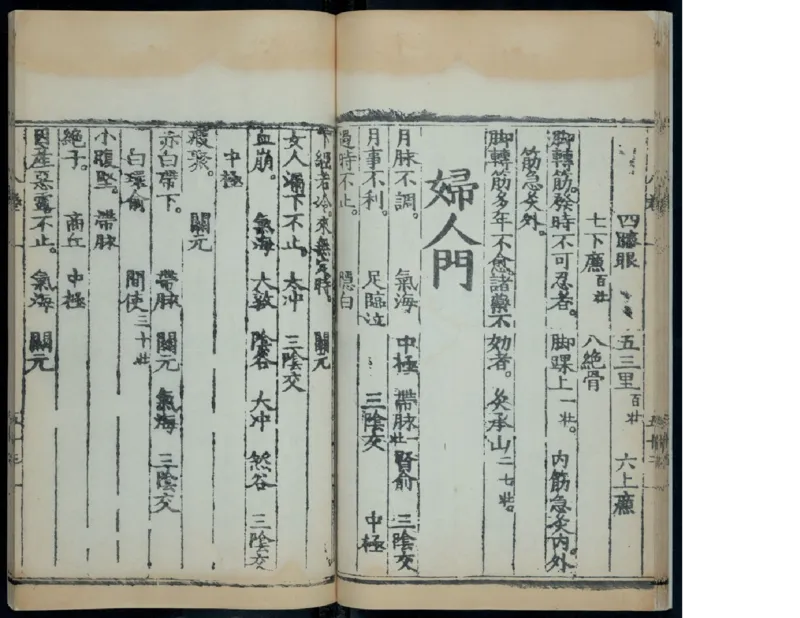 四膝眼 五三里百壮 六上廉
七下廉百壮 八絶骨
脚轉筋。發時不可忍者。 脚踝上一壮。 内筋急灸内。外
筋急灸外。
脚轉筋多年不愈諸藥不効者。灸承山二七壮。
婦人門
月脉不調。 氣海 中極 帶脉一壮 腎俞 三陰交
月事不利。 足臨泣 三陰交 中極
過時不止。 隱白
下經若冷。來無定時。 關元
女人漏下不止。 太冲 三陰交
血崩。 氣海 大敦 陰谷 太冲 然谷 三陰交
中極
瘕聚。 關元
赤白帶下。 帶脉 關元 氣海 三陰交
白環俞 間使三十壮
小腹堅。 帶脉
絶子。 商丘 中極
因産惡露不止。 氣海 關元